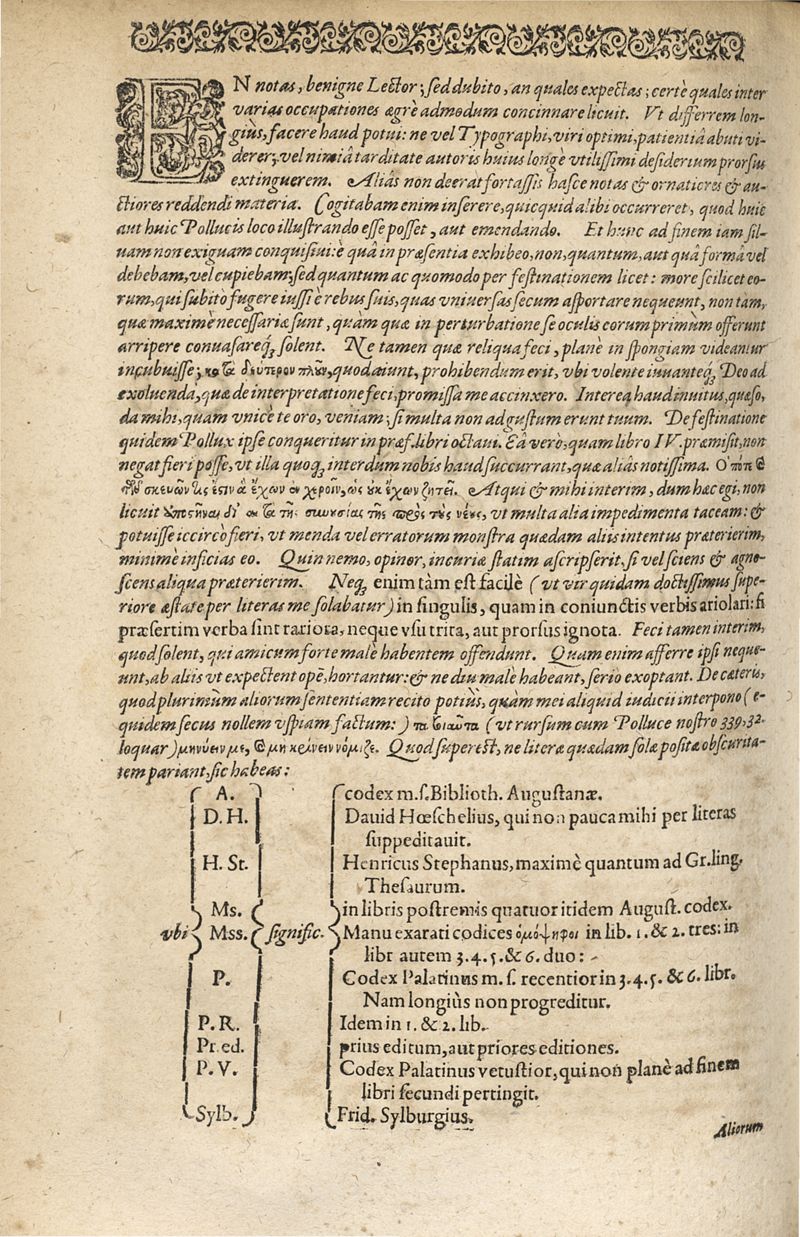 EN notas, benigne Lector; sed dubito, an quales expectas; certè quales inter
varias occupationes ægrè admodum concinnare licuit. Vt differrem lon-
giùs, facere haud potui: ne vel Typographi, viri optimi, patientiâ abuti vi-
derer; vel nimiâ tarditate autoris huius longè vtilissimi desiderium prorsus
extinguerem. Aliâs non deerat fortassis hasce notas & ornatiores & au-
ctiores reddendi materia. Cogitabam enim inserere, quicquid alibi occurreret, quod huic
aut huic Pollucis loco illustrando esse posset, aut emendando. Et hunc ad finem iam sil-
uam non exiguam conquisiui: è quâ in præsentia exhibeo, non, quantum, aut quâ formâ vel
debebam, vel cupiebam; sed quantum ac quomodo per festinationem licet: more scilicet eo-
rum, qui subito fugere iussi è rebus suis, quas vniuersas secum asportare nequeunt, non tàm,
quæ maximè necessariæ sunt, quàm quæ in perturbatione se oculis eorum primùm offerunt
arripere conuasareq; solent. Ne tamen quæ reliqua feci, planè in spongiam videantur
incubuisse; δεύτερον πλοῦν, quod aiunt, prohibendum erit, vbi volente iuuanteq; Deo ad
exoluenda, quæ de interpretatione feci, promissa me accinxero. Interea haud inuitus, quæso,
da mihi, quam vnicè te oro, veniam; si multa non ad gustum erunt tuum. De festinatione
quidem Pollux ipse conqueritur in præf. libri octaui. Eâ verò, quam libro IV. præmisit, non
negat fieri posse, vt illa quoq; interdum nobis haud succurrant, quæ aliâs notissima.
σκευῶν ἐστιν ἃ ἔχων ἐν χεροῖν, ὡς οὐκ ἔχων ζητεῖ. Atqui & mihi interim, dum hæc egi, non
licuit τῆς τοὺς νέους, vt multa alia impedimenta taceam: &
potuisse iccircò fieri, vt menda vel erratorum monstra quædam aliis intentus præterierim,
minimè inficias eo. Quin nemo, opinor, incuriæ statim ascripserit, si vel sciens & agno-
scens aliqua præterierim. Neq; enim tàm est facilè (vt vir quidam doctissimus supe-
riore æstate per literas me solabatur) in singulis, quam in coniunctis verbis ariolari: si
præsertim verba sint rariora, neque vsu trita, aut prorsus ignota. Feci tamen interim,
quod solent, qui amicum forte male habentem offendunt. Quam enim afferre ipsi neque-
unt, ab aliis vt expectent opē, hortantur: & ne diu malè habeant, seriò exoptant. De cæteris,
quod plurimùm aliorum sententiam recito potiùs, quàm mei aliquid iudicii interpono (e-
quidem secus nollem vspiam factum:) τὰ τοιαῦτα (vt rursum cum Polluce nostro 339, 32.
loquar) μηνύειν με, καὶ μὴ κρίνειν νόμιζε. Quod superest, ne literæ quædam solæ positæ obscurita-
tem pariant, sic habeas:
A. codex m.s. Biblioth. Augustanæ.
D. H. Dauid Hœschelius, qui non pauca mihi per literas
suppeditauit.
H. St. Henricus Stephanus, maximè quantum ad Gr. ling.
Thesaurum.
Ms. in libris postremis quatuor itidem August. codex.
vbi Mss. signific. Manu exarati codices ὁμόψηφοι in lib. 1. & 2. tres: in
libr autem 3. 4. 5. & 6. duo:
P. Codex Palatinus m. s. recentior in 3. 4. 5. & 6. libr.
Nam longiùs non progreditur.
P. R. Idem in 1. & 2. lib.
Pr. ed. prius editum, aut priores editiones.
P. V. Codex Palatinus vetustior, qui non planè ad finem
libri secundi pertingit.
Sylb. Frid. Sylburgius.
Aliorum